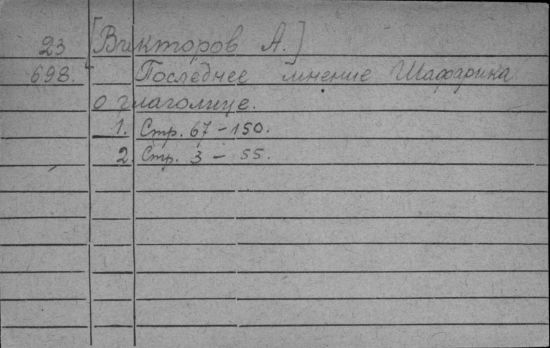 23 [Викторов А.]
698. Последнее мнение Шафарика
о глаголице.
1. Стр. 67-150.
2. Стр. 3 - 55.